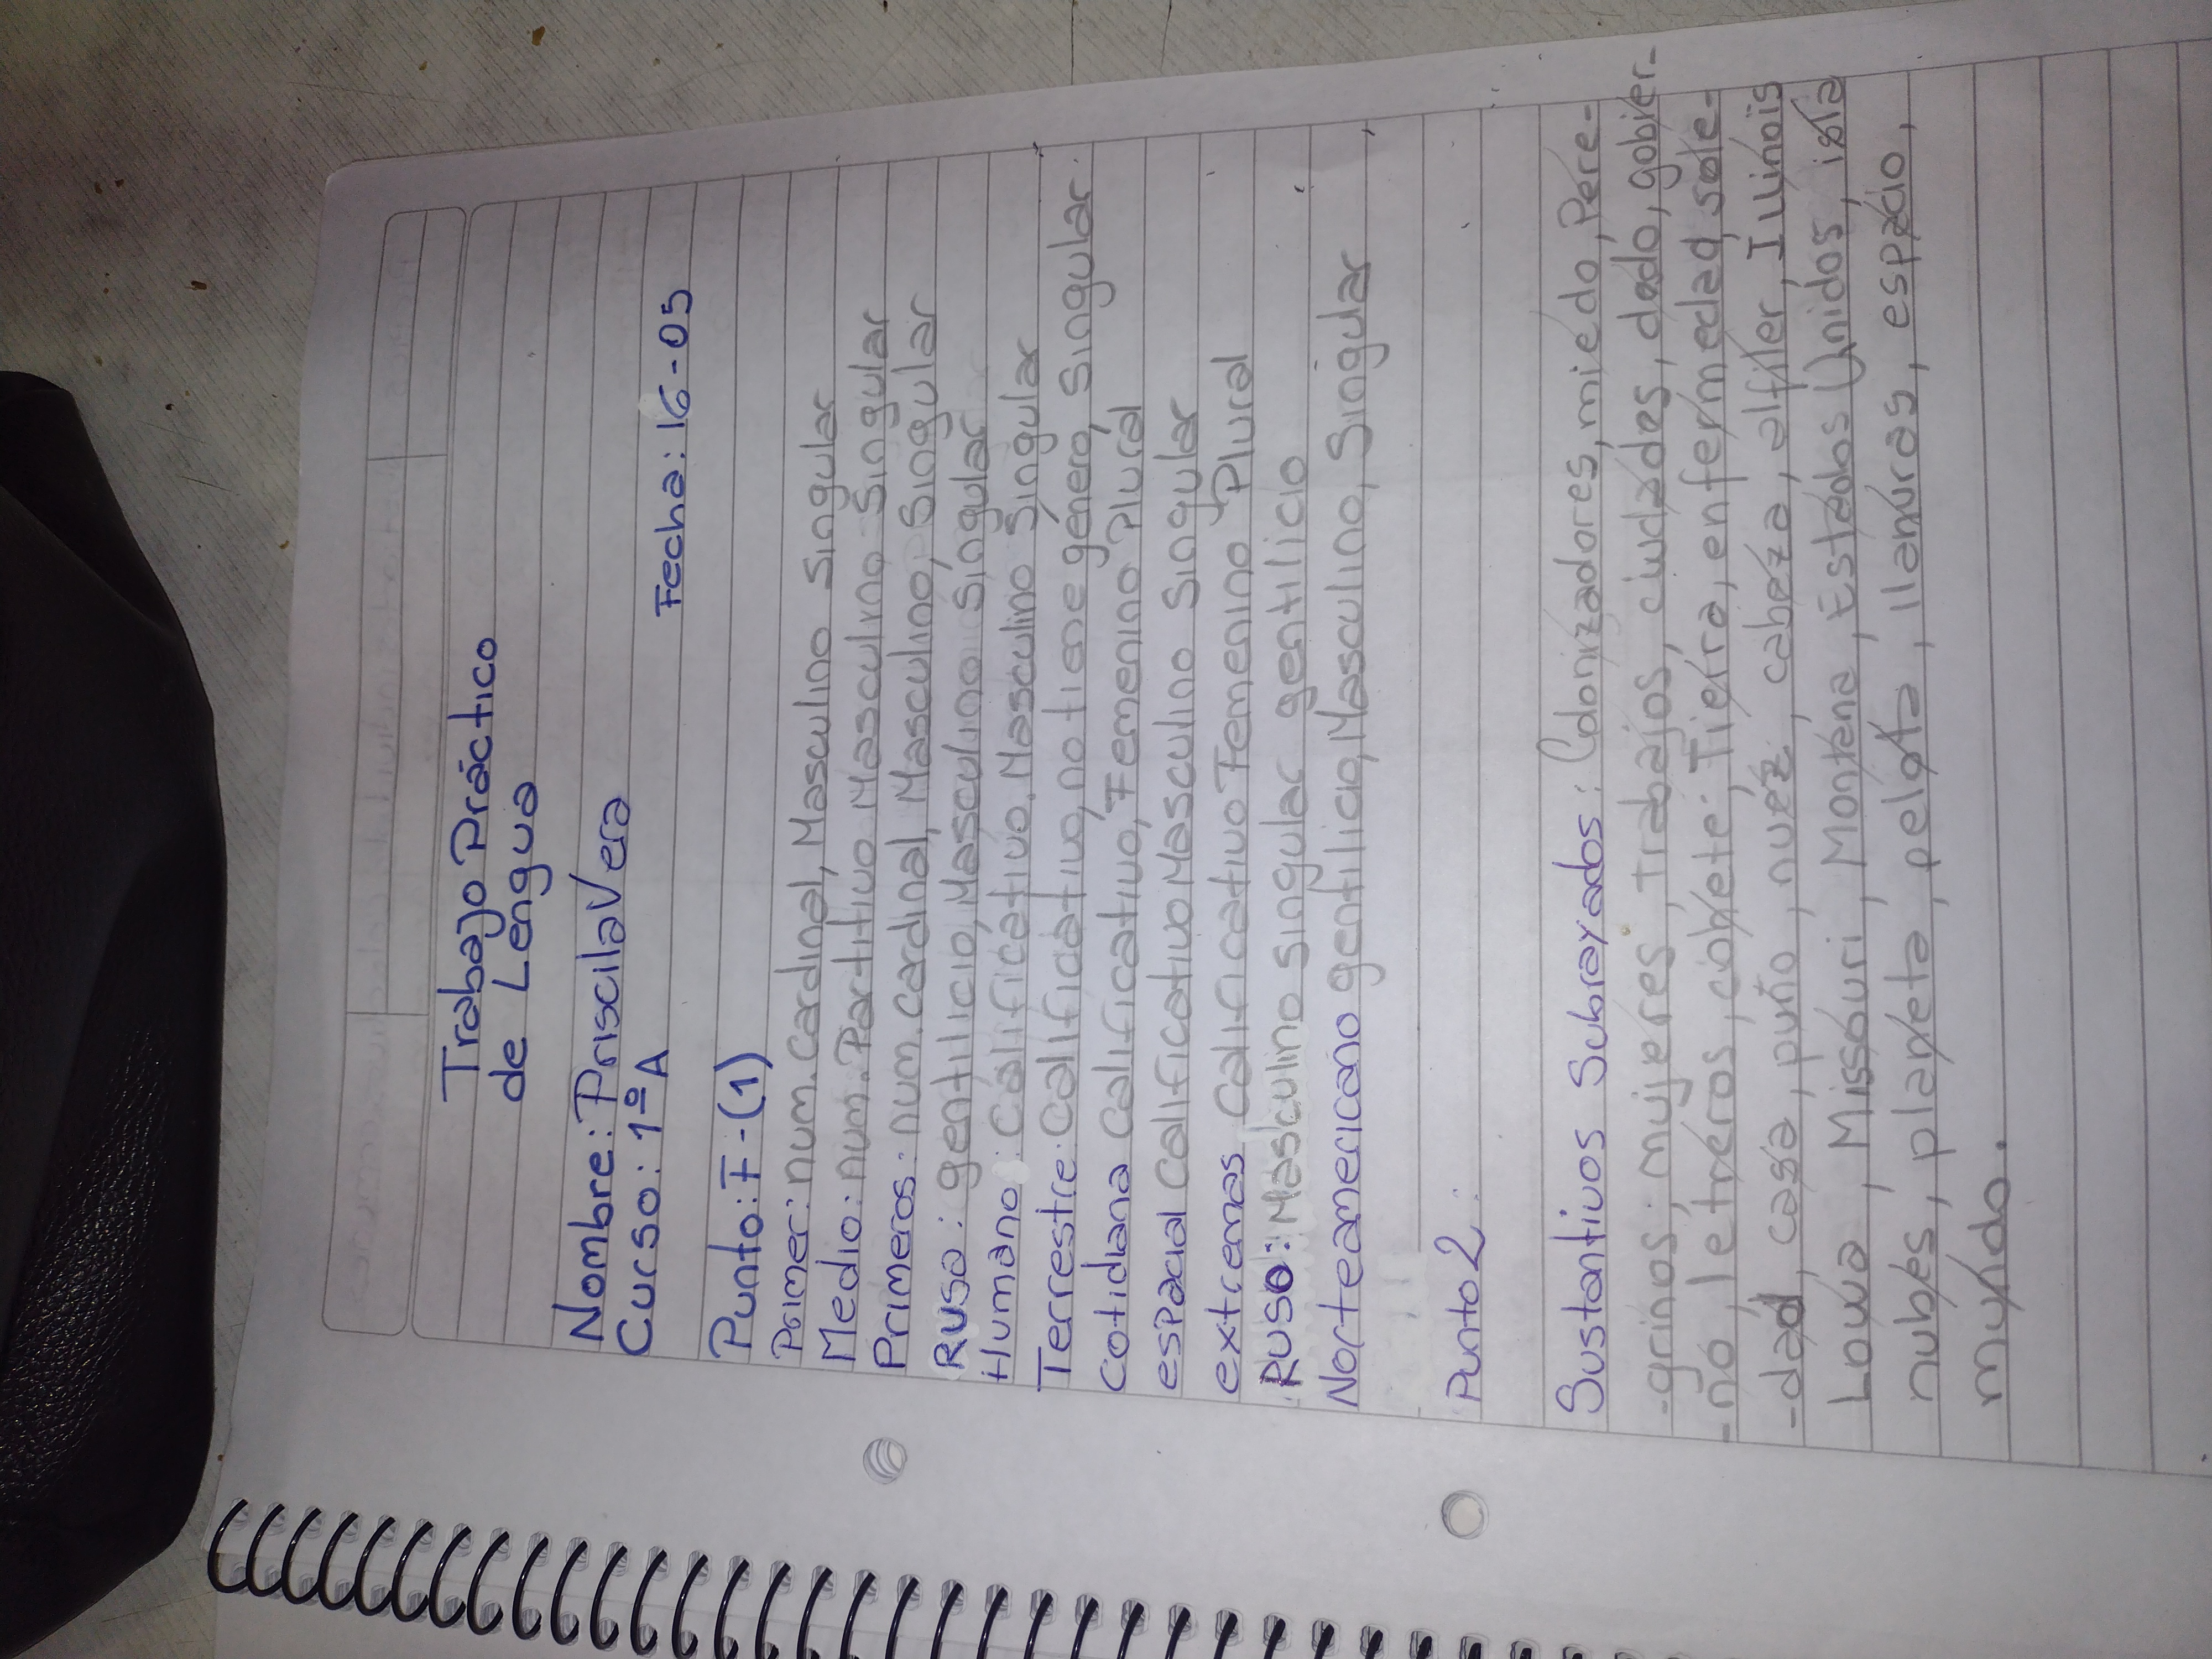 Trabajo Práctico
de Lengua
Nombre: Priscila Vera
Curso: 1º A
Fecha: 16-05
Punto: F-(1)
Primer: num. Cardinal, Masculino Singular
Medio: num. Partitivo Masculino Singular
Primeros: num. cardinal, Masculino, Singular
Ruso: gentilicio, Masculino Singular
Humano: Calificativo, Masculino Singular
Terrestre: Calificativo, no tiene género, Singular.
Cotidiana Calificativo, Femenino Plural
espacial Calificativo Masculino Singular
extremas Calificativo Femenino Plural
Ruso: Masculino singular gentilicio
Norteamericano gentilicio, Masculino, Singular
Punto 2:
Sustantivos Subrayados: Colonizadores, miedo, Pere-
-grinos; mujeres, trabajos, ciudades, dedo, gobier-
-no, letreros, cohete: Tierra, enfermedad, sole-
-dad, casa, puño, nuez, cabeza, alfiler, Illinois
Lowa, Missouri, Montana, Estados Unidos, isla
nubes, planeta, pelota, llanuras, espacio,
mundo.